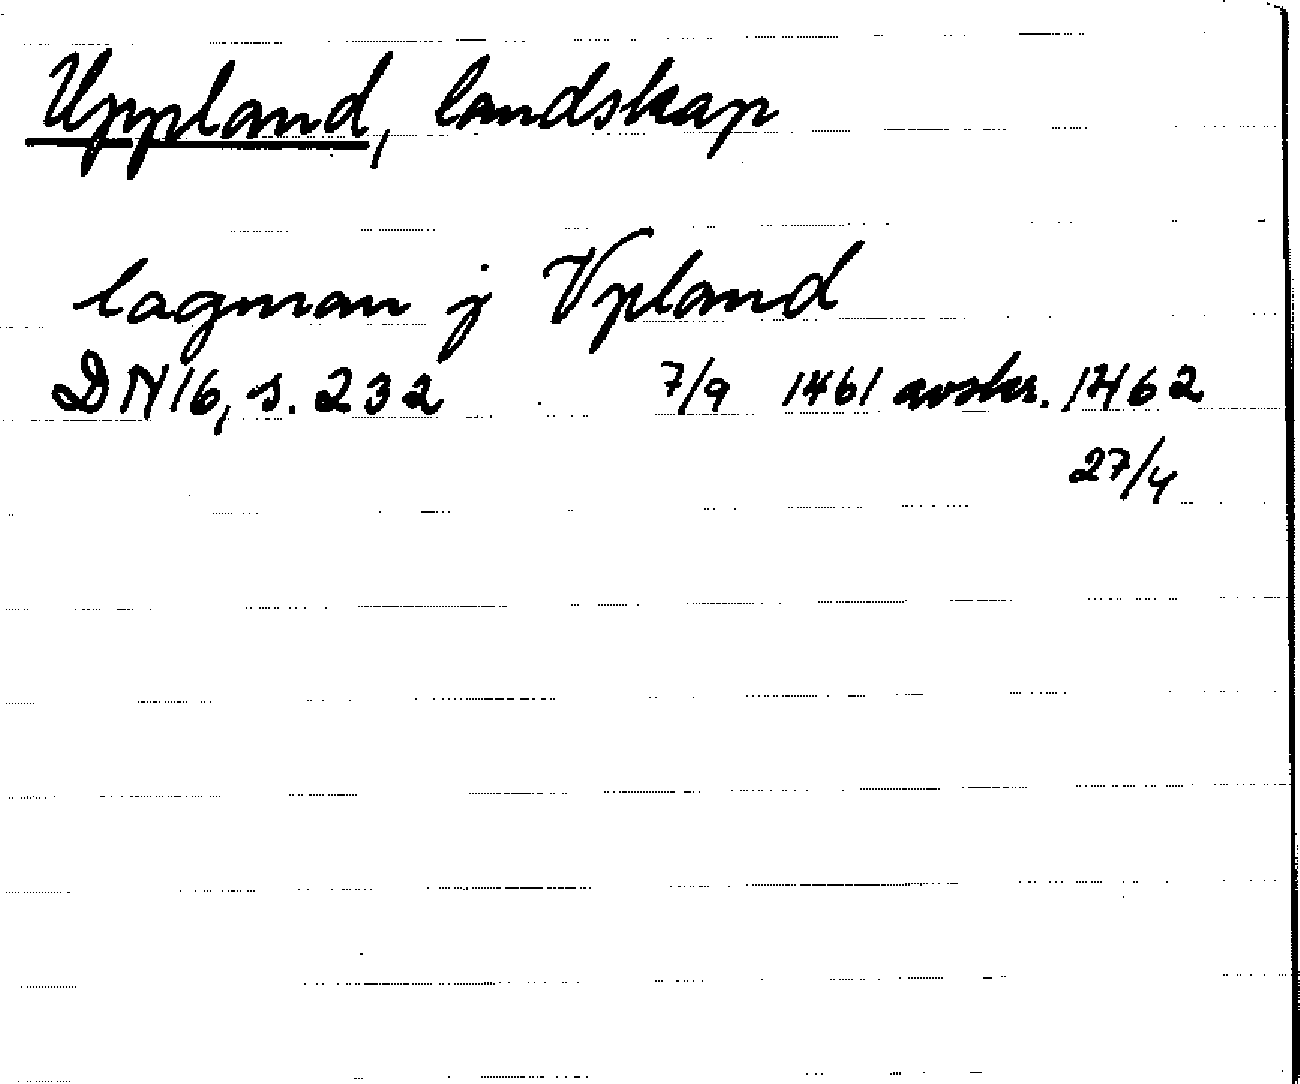 Uppland, landskap
lagman j Vpland
DN 16, s. 232 7/9 1461 avskr. 1462
27/4